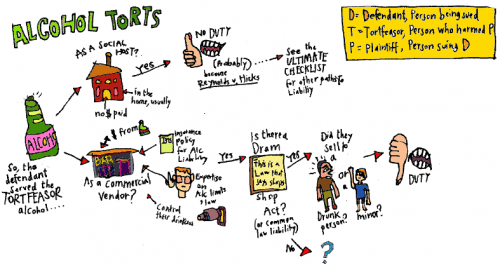 ALCOHOL TORTS
D = Defendant, Person being sued
T = Tortfeasor, Person who harmed P
P = Plaintiff, Person suing D
AS A SOCIAL
HOST?
yes
NO DUTY
(Probably)
because
Reynolds v. Hicks
See the
ULTIMATE
CHECKLIST
for other paths to
Liability
in the
home, usually
no $ paid
ALCOHOL
So, the
defendant
served the
TORTFEASOR
alcohol....
$ from
BAR
As a commercial
vendor?
Insurance
Policy
for Alc
Liability
Expertise
on
Alc limits
+ law
Control
their drinking
yes
Is there a
Dram
This is a
Law that
says shops
Shop
Act?
(or common
law liability)
No
?
yes
Did they
sell to
a
Drunk
person?
or
a
minor?
DUTY